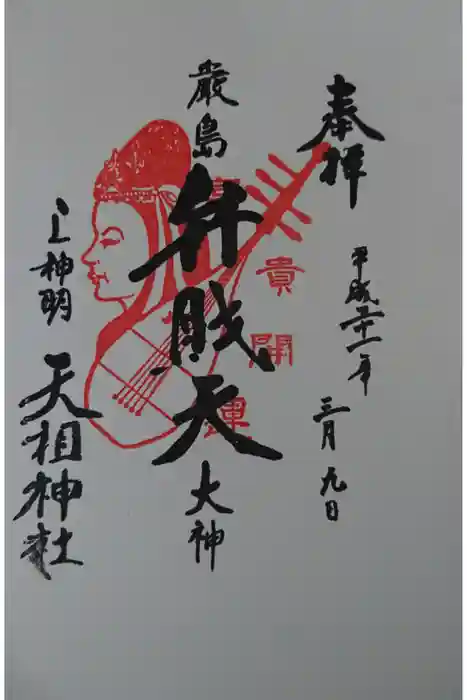 奉拝
平成二十一年
三月九日
厳島
弁賎天
大神
貴
開運
上神明
天祖神社